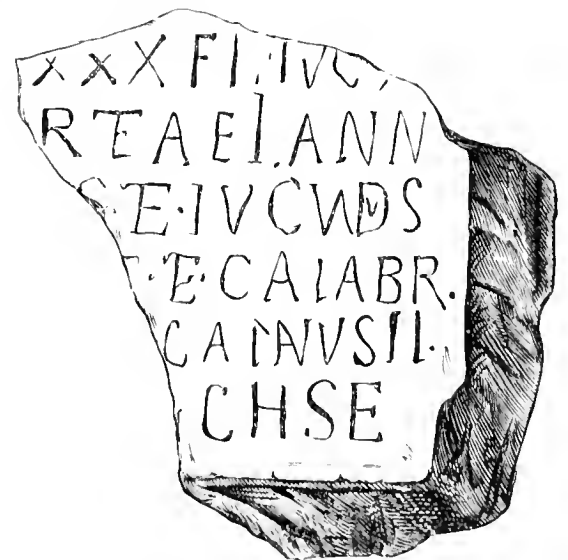 XXX FI. IVC
RTEAEI.ANN
E·IVCVNDS
E·CAIABR.
CAINVSII·
CHSE